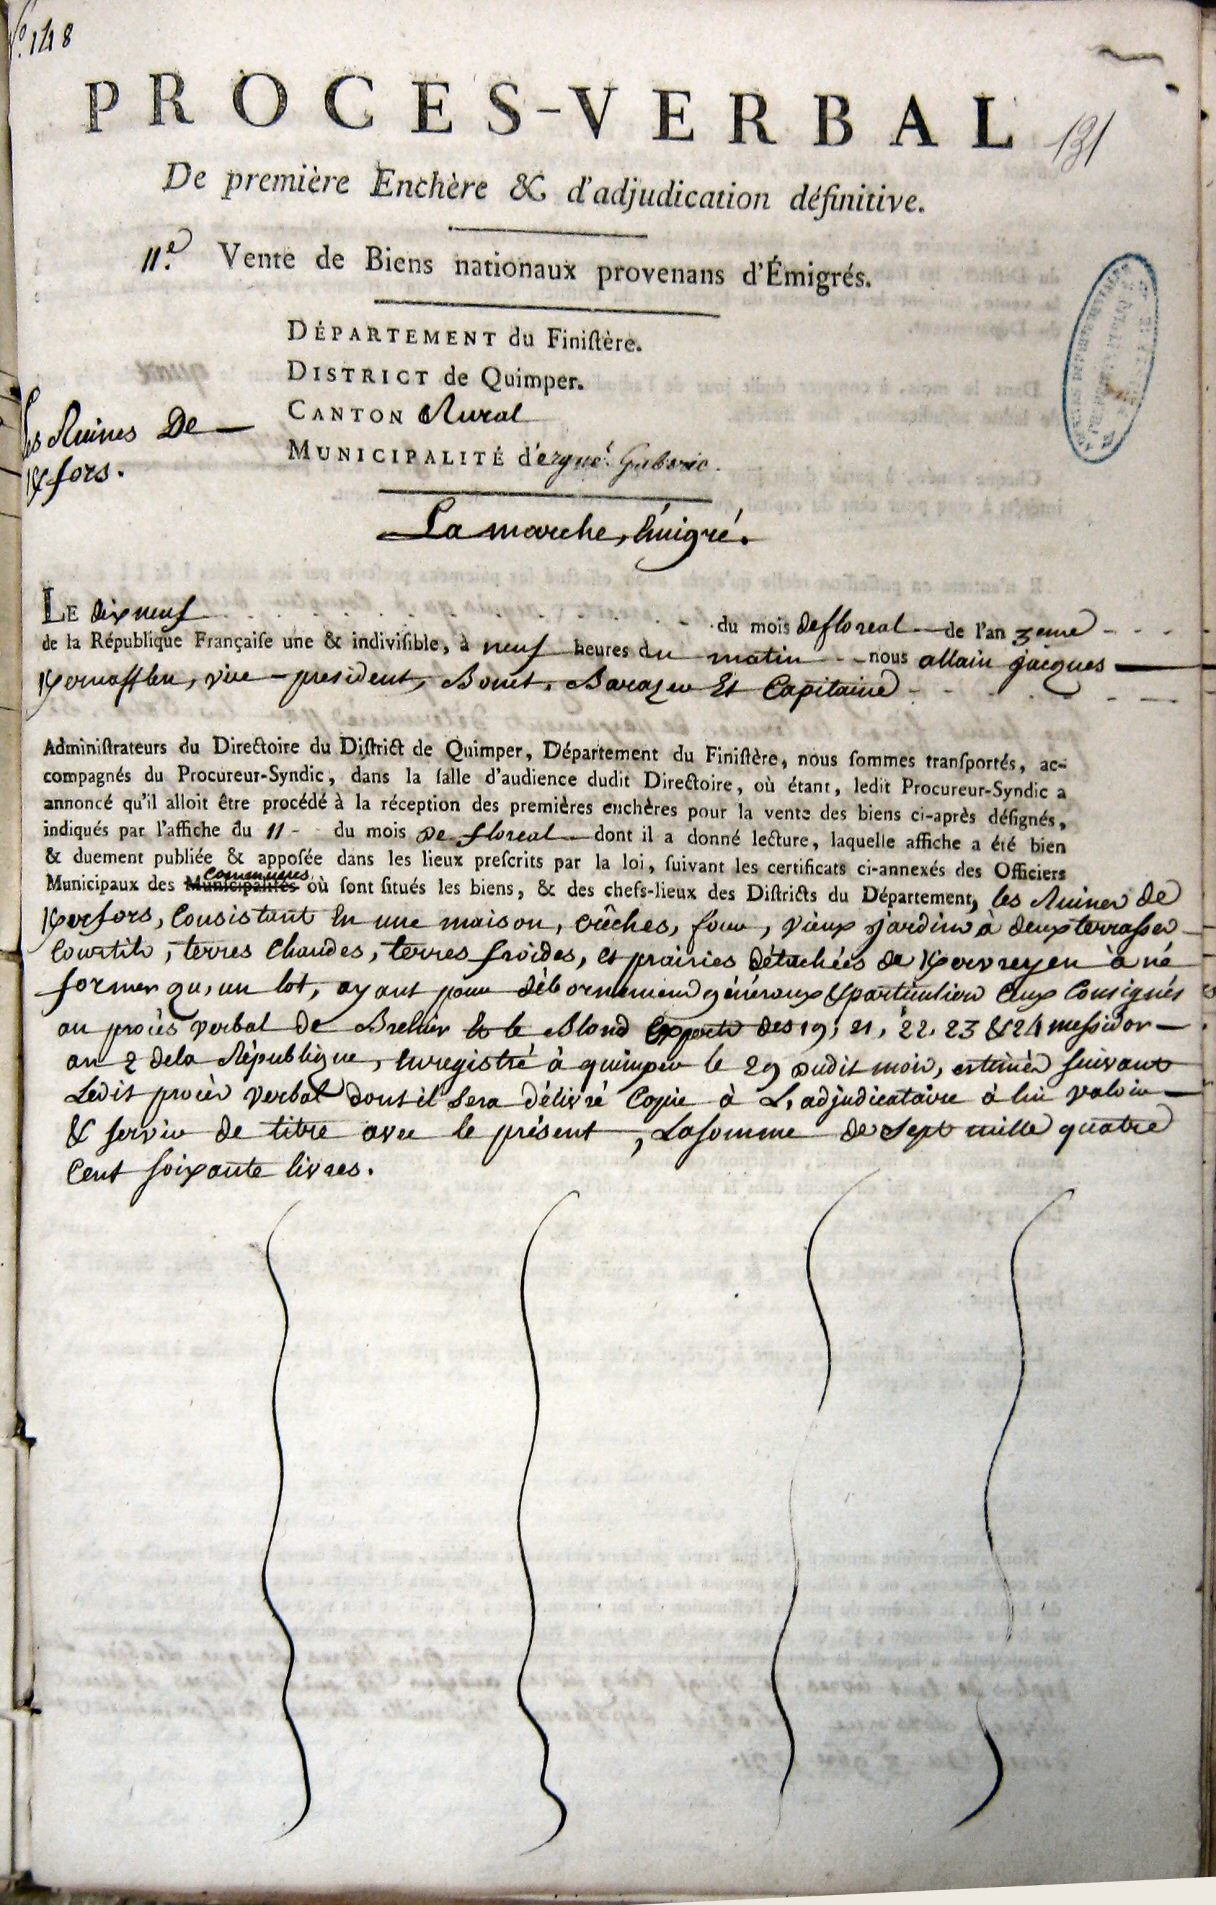 N.º 148
PROCES-VERBAL
131
De première Enchère & d'adjudication définitive.
11.e Vente de Biens nationaux provenans d'Émigrés.
DÉPARTEMENT du Finiſtère.
DISTRICT de Quimper.
CANTON Rural
Les Ruines De
K/fors.
MUNICIPALITÉ d'ergué Gaberic.
La marche, émigré.
LE dix neuf du mois de floreal de l'an 3eme
de la République Françaiſe une & indiviſible, à neuf heures du matin nous allain jacques
président, Bonet, Barazer Et Capitaine
Adminiſtrateurs du Directoire du Diſtrict de Quimper, Département du Finiſtère, nous ſommes tranſportés, ac-
compagnés du Procureur-Syndic, dans la ſalle d'audience dudit Directoire, où étant, ledit Procureur-Syndic a
annoncé qu'il alloit être procédé à la réception des premières enchères pour la vente des biens ci-après déſignés,
indiqués par l'affiche du 11 du mois De floreal dont il a donné lecture, laquelle affiche a été bien
& duement publiée & appoſée dans les lieux preſcrits par la loi, ſuivant les certificats ci-annexés des Officiers
communes
Municipaux des Municipalités où ſont ſitués les biens, & des chefs-lieux des Diſtricts du Département, les Ruines de
K/erfors, Consistant En une maison, crêches, four, vieux jardin à deux terrasses
Courtils, terres Chaudes, terres froides, et prairies détachées de K/ervreyen à ne
former qu'un lot, ayant pour débornemens généraux & particuliers Ceux Consignés
au procès verbal de Brelivir & le Blond Experts des 19, 21, 22, 23 & 24 messidor
an 2 de la République, Enregistré à quimper le 29 dudit mois, estimés suivant
Ledit procès verbal dont il Sera Délivré Copie à L'adjudicataire à lui valoir
& servir de titre avec le présent, La somme de Sept mille quatre
Cent soixante livres.